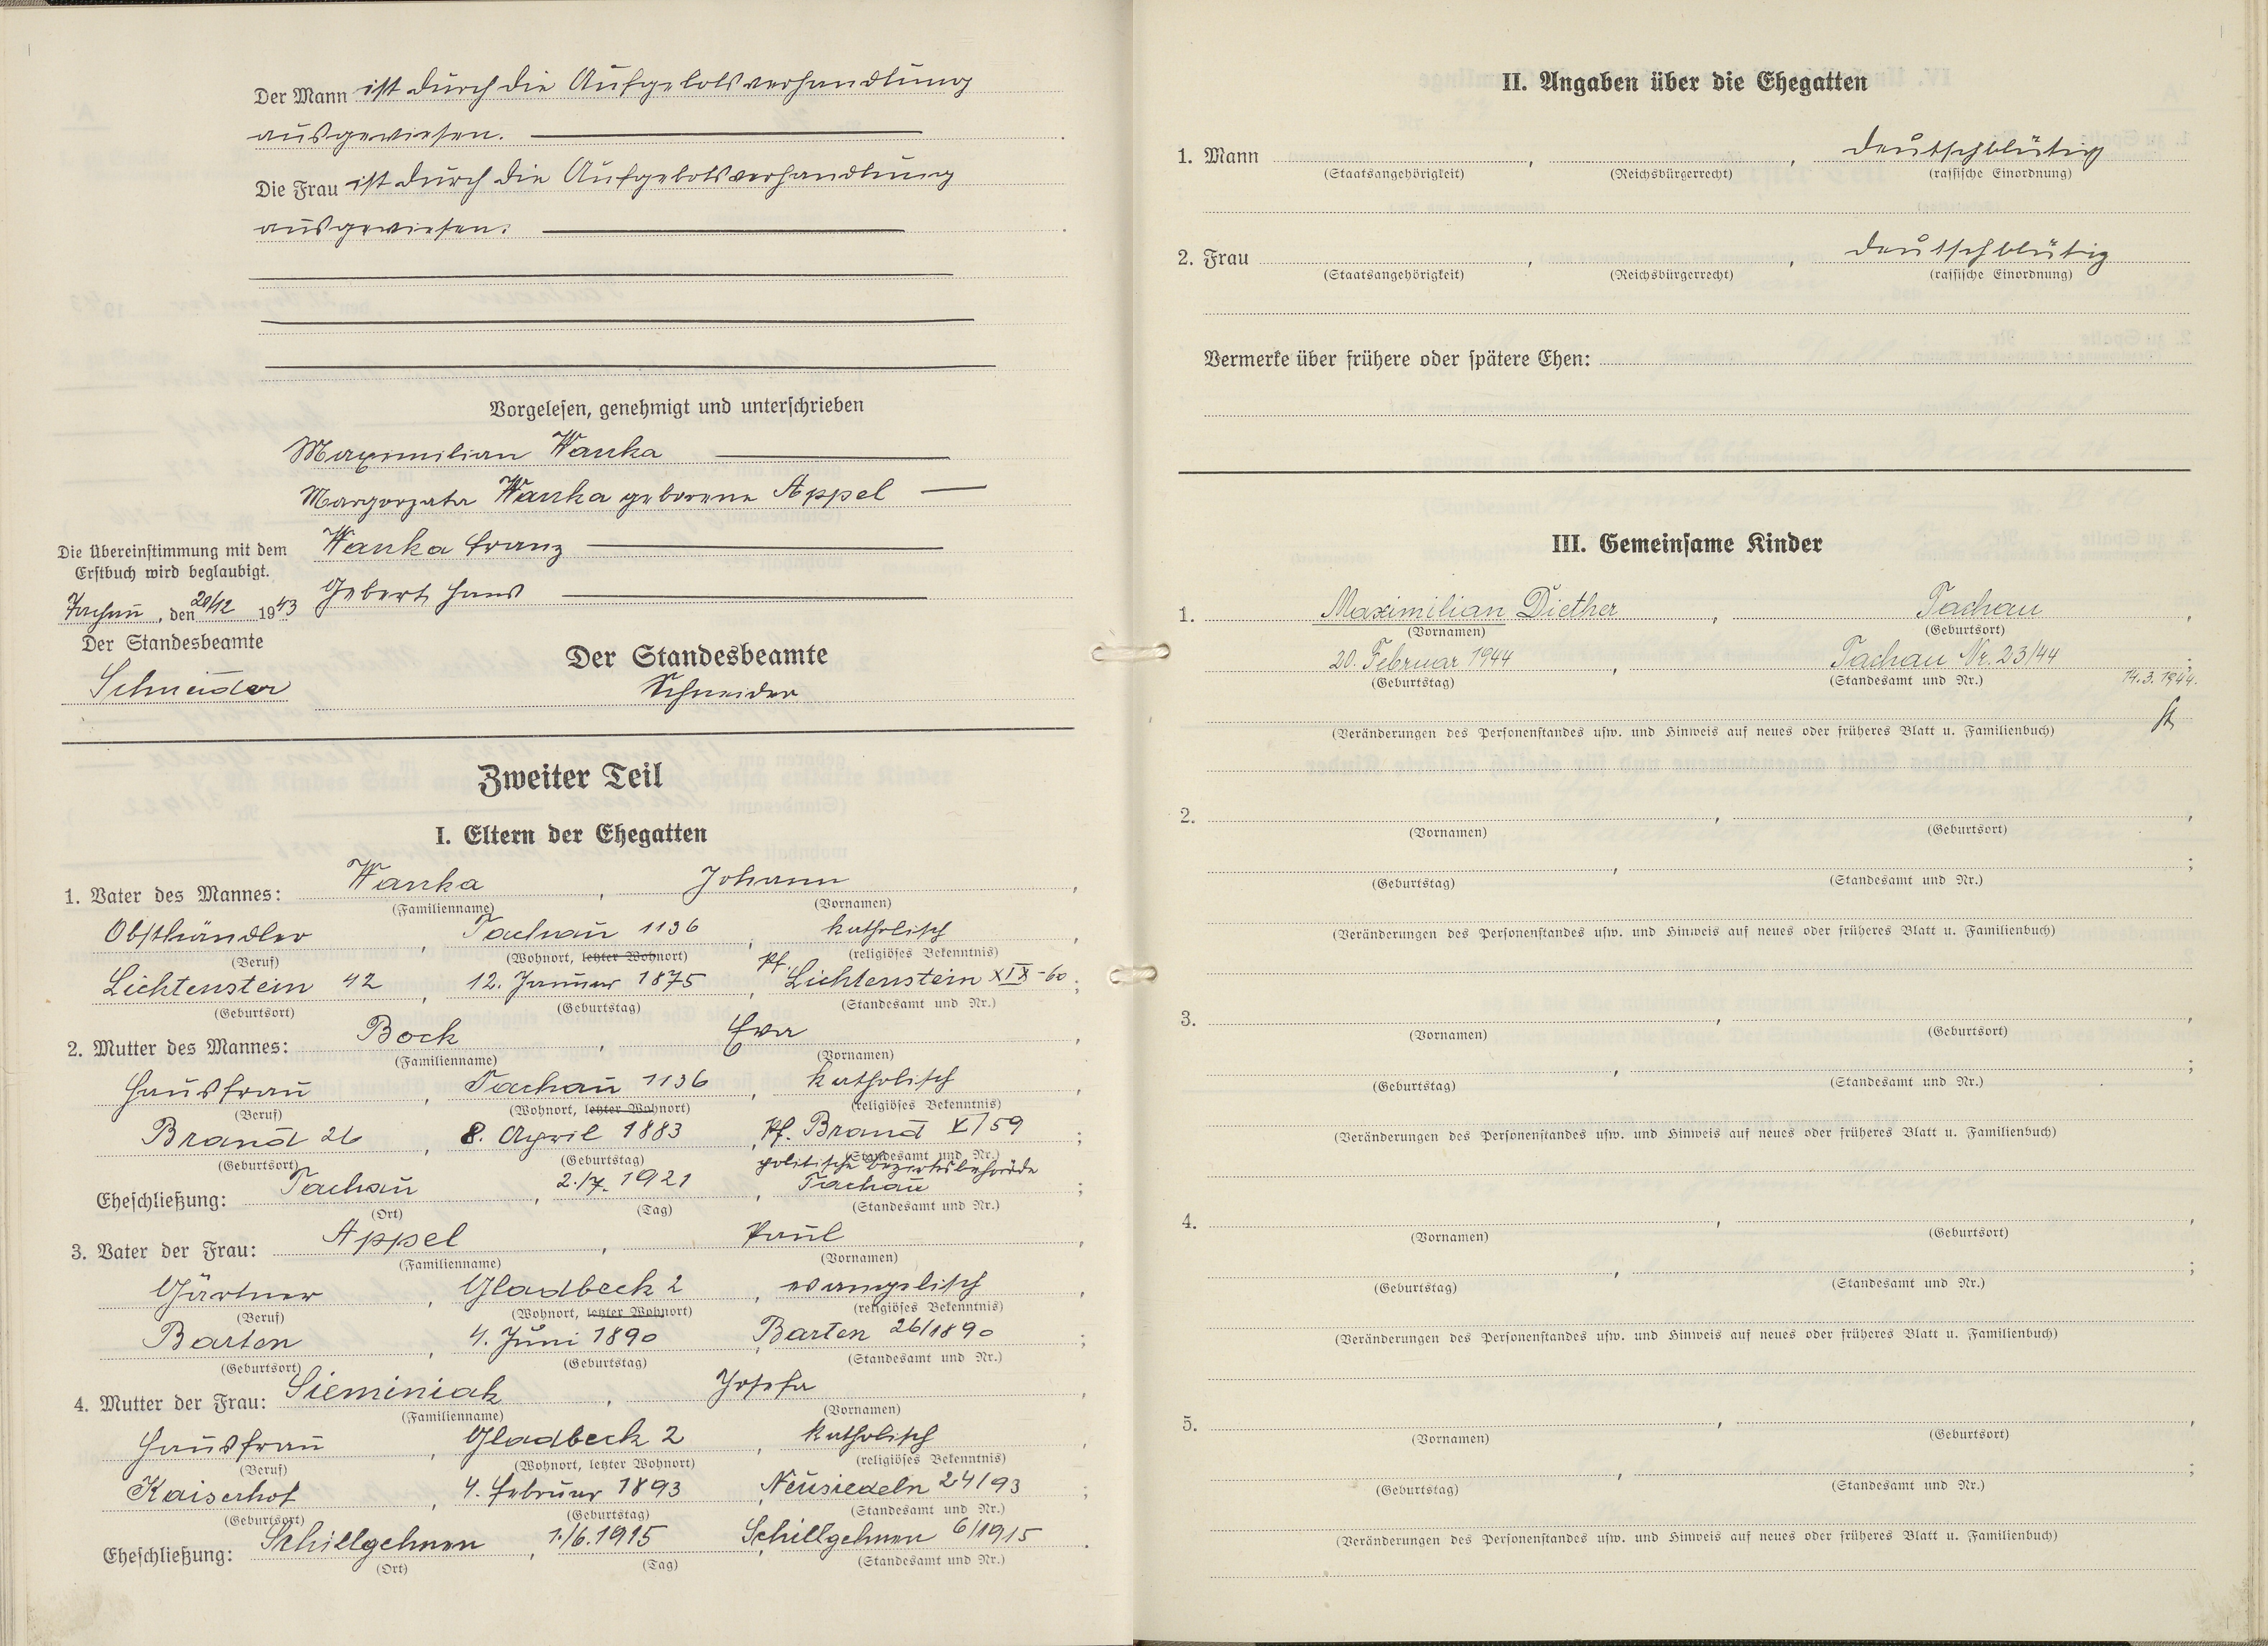 Der Mann ist durch die Aufgebotsverhandlung
ausgewiesen.
Die Frau ist durch die Aufgebotsverhandlung
ausgewiesen.
Vorgelesen, genehmigt und unterschrieben
Maximilian Wanka
Margorzata Wanka geborene Appel
Wanka Franz
Gebert Hans
Die Übereinstimmung mit dem
Erstbuch wird beglaubigt.
Tachau, den 20/12 1943
Der Standesbeamte
Schneider
Der Standesbeamte
Schneider
Zweiter Teil
I. Eltern der Ehegatten
1. Vater des Mannes: Wanka, Johann,
(Familienname) (Vornamen)
Obsthändler, Tachau 1136, katholisch,
(Beruf) (Wohnort, letzter Wohnort) (religiöses Bekenntnis)
Lichtenstein 42, 12. Januar 1875, Pf. Lichtenstein XIX-60;
(Geburtsort) (Geburtstag) (Standesamt und Nr.)
2. Mutter des Mannes: Bock, Eva,
(Familienname) (Vornamen)
Hausfrau, Tachau 1136, katholisch,
(Beruf) (Wohnort, letzter Wohnort) (religiöses Bekenntnis)
Brand 26, 8. April 1883, Pf. Brand X/59;
(Geburtsort) (Geburtstag) (Standesamt und Nr.)
politische Bezirksbehörde
Eheschließung: Tachau, 2./7. 1921, Tachau;
(Ort) (Tag) (Standesamt und Nr.)
3. Vater der Frau: Appel, Paul,
(Familienname) (Vornamen)
Gärtner, Gladbeck 2, evangelisch,
(Beruf) (Wohnort, letzter Wohnort) (religiöses Bekenntnis)
Barten, 4. Juni 1890, Barten 26/1890;
(Geburtsort) (Geburtstag) (Standesamt und Nr.)
4. Mutter der Frau: Sieminiak, Josefa,
(Familienname) (Vornamen)
Hausfrau, Gladbeck 2, katholisch,
(Beruf) (Wohnort, letzter Wohnort) (religiöses Bekenntnis)
Kaiserhof, 4. Februar 1893, Neusiedeln 24/93;
(Geburtsort) (Geburtstag) (Standesamt und Nr.)
Eheschließung: Schillgehnen, 1./6. 1915, Schillgehnen 6/1915.
(Ort) (Tag) (Standesamt und Nr.)
II. Angaben über die Ehegatten
1. Mann , , deutschblütig
(Staatsangehörigkeit) (Reichsbürgerrecht) (rassische Einordnung)
2. Frau , , deutschblütig
(Staatsangehörigkeit) (Reichsbürgerrecht) (rassische Einordnung)
Vermerke über frühere oder spätere Ehen:
III. Gemeinsame Kinder
1. Maximilian Diether, Tachau,
(Vornamen) (Geburtsort)
20. Februar 1944, Tachau Nr. 23/44;
(Geburtstag) (Standesamt und Nr.) 14.3.1944.
(Veränderungen des Personenstandes usw. und Hinweis auf neues oder früheres Blatt u. Familienbuch)
2. , ,
(Vornamen) (Geburtsort)
, ;
(Geburtstag) (Standesamt und Nr.)
(Veränderungen des Personenstandes usw. und Hinweis auf neues oder früheres Blatt u. Familienbuch)
3. , ,
(Vornamen) (Geburtsort)
, ;
(Geburtstag) (Standesamt und Nr.)
(Veränderungen des Personenstandes usw. und Hinweis auf neues oder früheres Blatt u. Familienbuch)
4. , ,
(Vornamen) (Geburtsort)
, ;
(Geburtstag) (Standesamt und Nr.)
(Veränderungen des Personenstandes usw. und Hinweis auf neues oder früheres Blatt u. Familienbuch)
5. , ,
(Vornamen) (Geburtsort)
, ;
(Geburtstag) (Standesamt und Nr.)
(Veränderungen des Personenstandes usw. und Hinweis auf neues oder früheres Blatt u. Familienbuch)